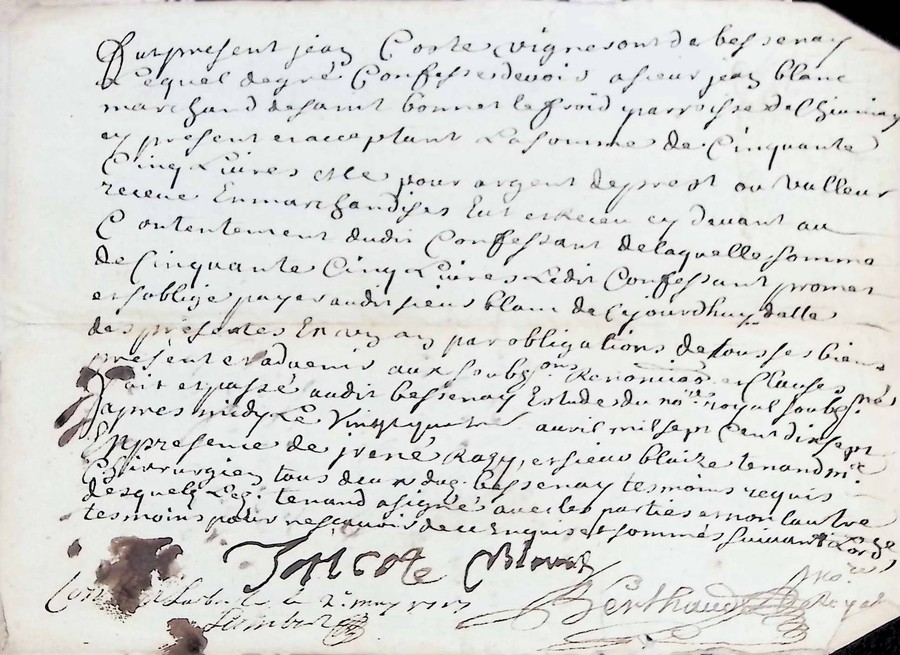 Fut present jean Coste vigneront de bessenay
Lequel de gré Confesse devoir a sieur jean blanc
marchand de saint bonnet le froid parroisse de Chevinay
cy présent et acceptant La somme de Cinquante
Cinq Livres et ce pour argent de prest ou valleur
receue En marchandises Eut et Receu cy devant au
Contentement dudit Confessant de laquelle somme
de Cinquante Cinq Livres Ledit Confessant promet
et soblige payer audit sieur blanc de cejourdhuy datte
des présentes En un an par obligations de tous ses biens
présent et advenir aux soubz.ons Renoncios et Clauses
fait et passé audit bessenay Estude du no.re royal soubz.né
apres midy Le Vingtquatre avril mil sept Cent dix sept
En presence de irené Razy, et sieur blaize tenand m.e
Chirurgien tous deux dud. bessenay tesmoins requis
desquelz Led. tenand a signé avec les parties et non lautre
tesmoins pour ne scavoir de ce Enquis et sommés suivant Lord.e
J Coste Blanc
Berthaud no.re Royal
le 2.e may 1717